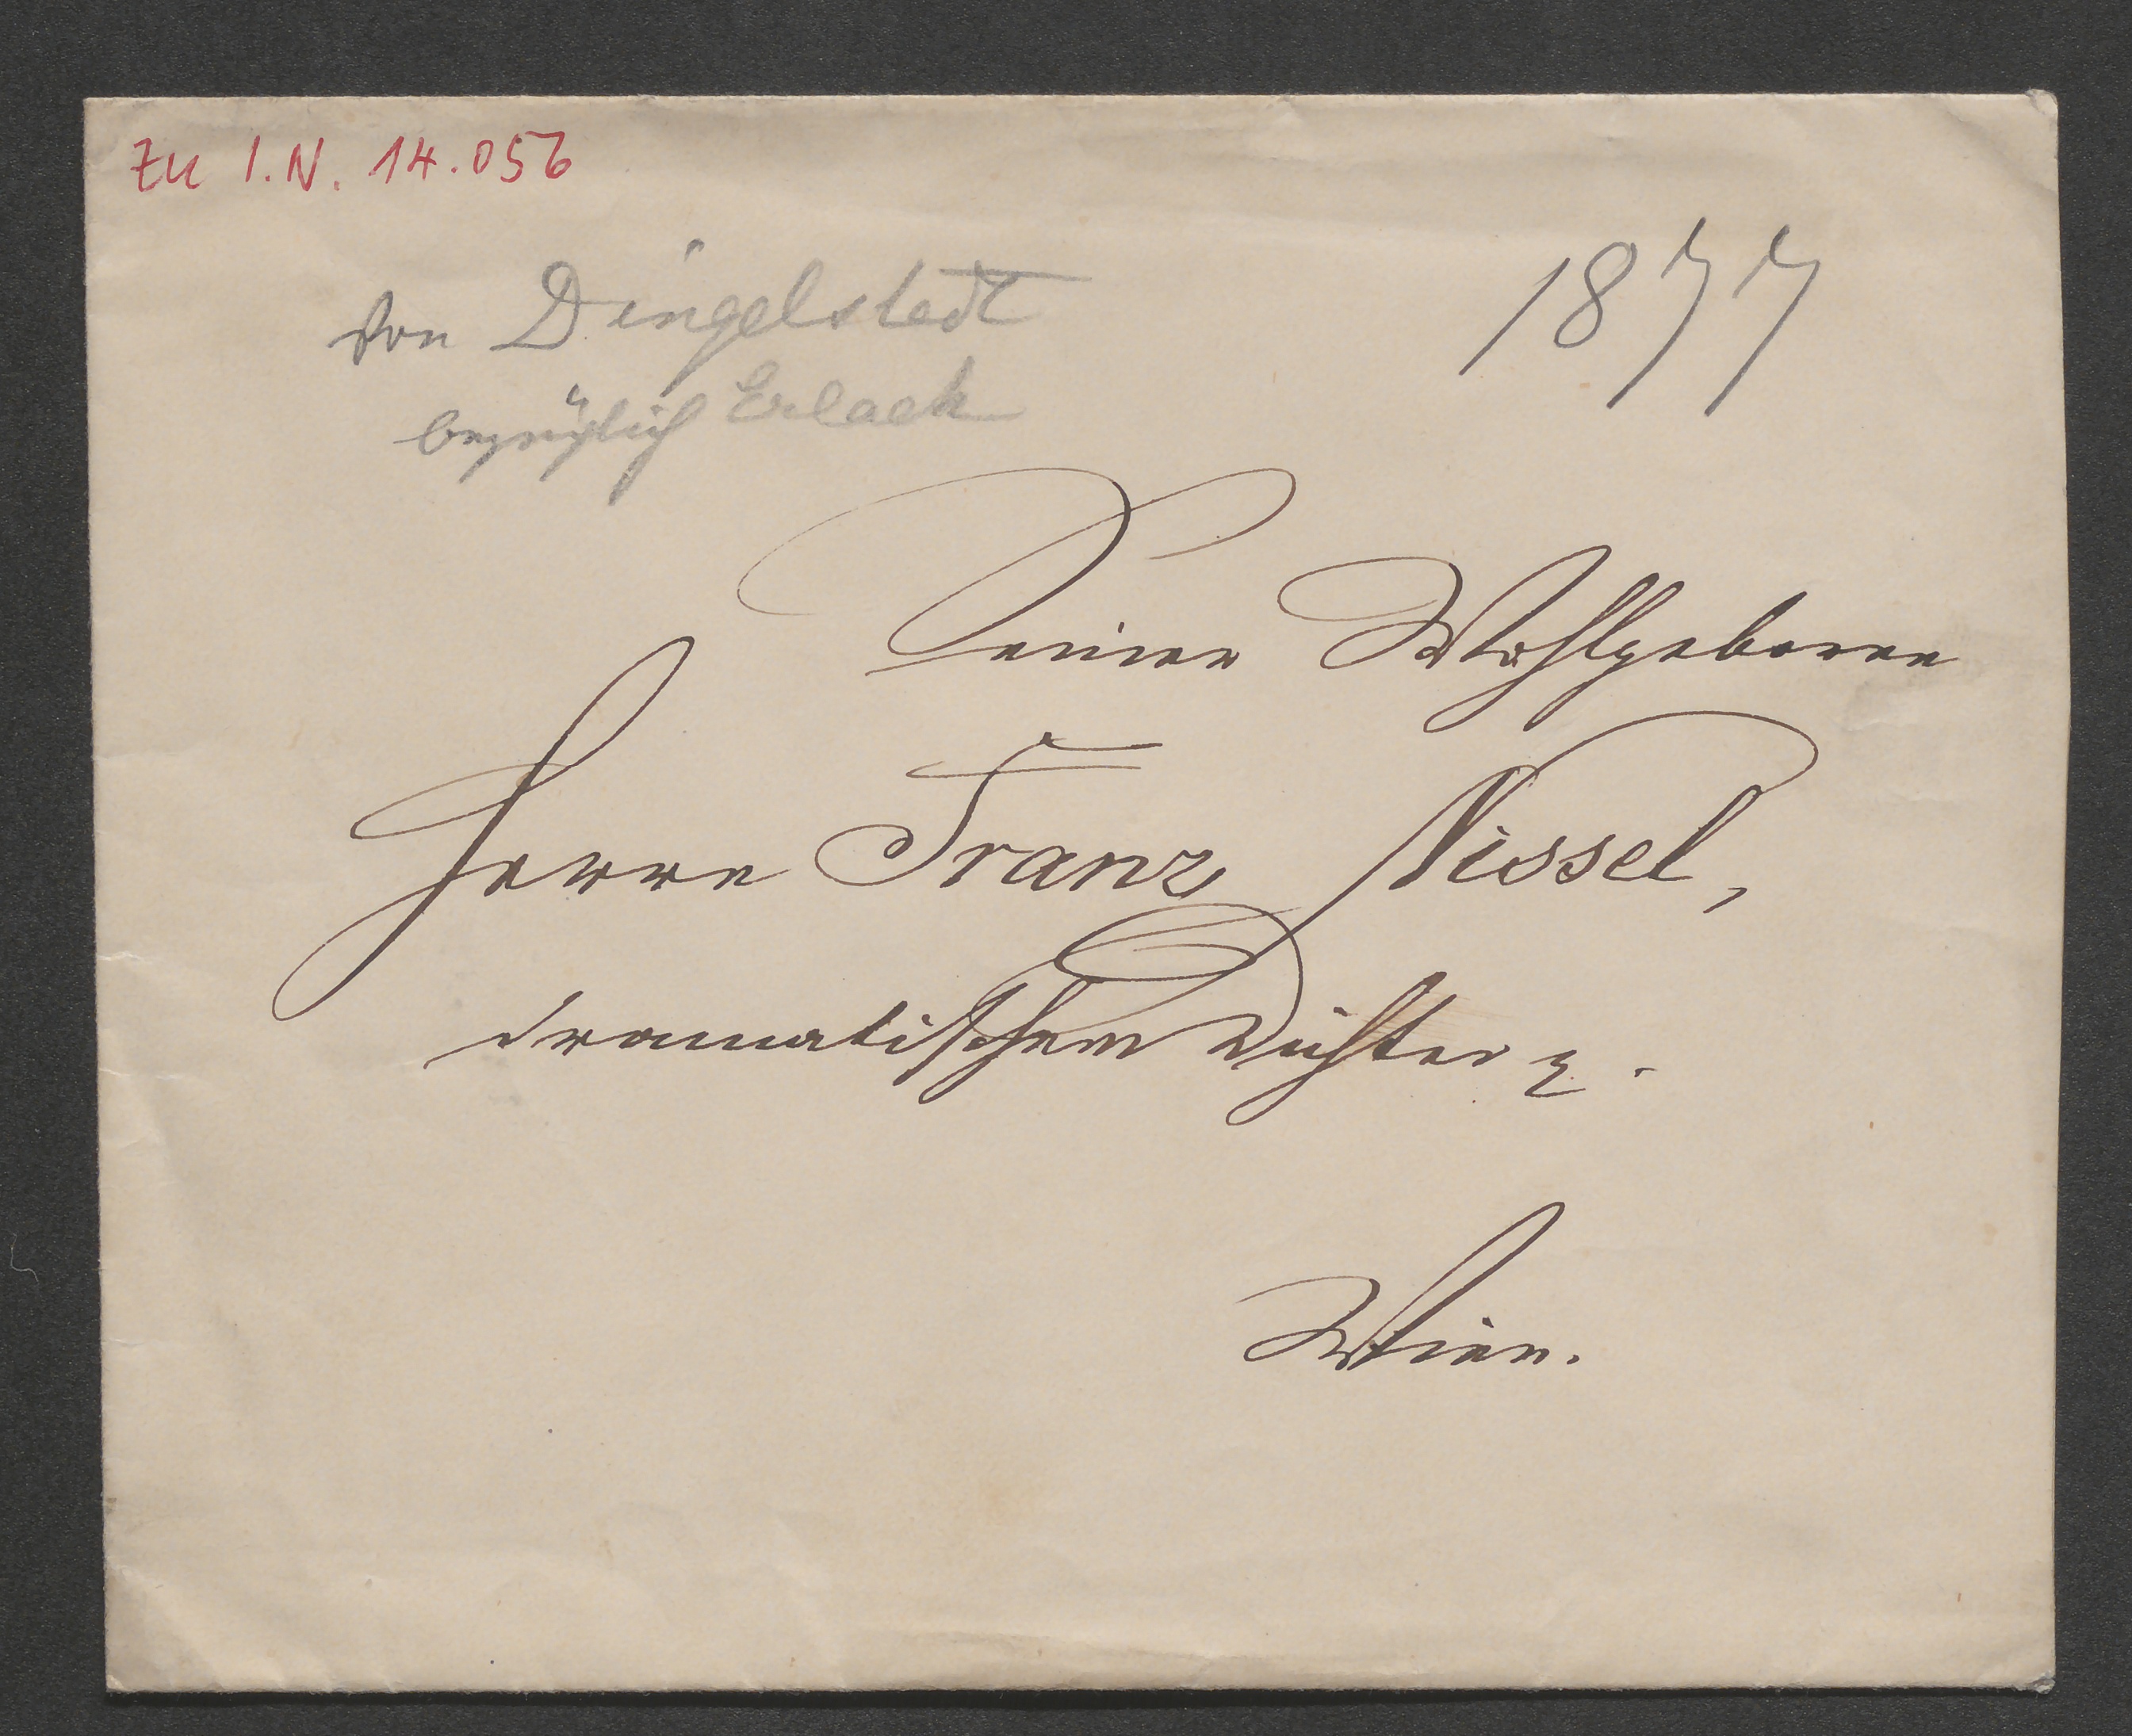 zu I.N. 14.056
Von Dingelstedt
1877
bezüglich Erlach
Seiner Wohlgeboren
Herrn Franz Nissel,
dramatischem Dichter
Wien.